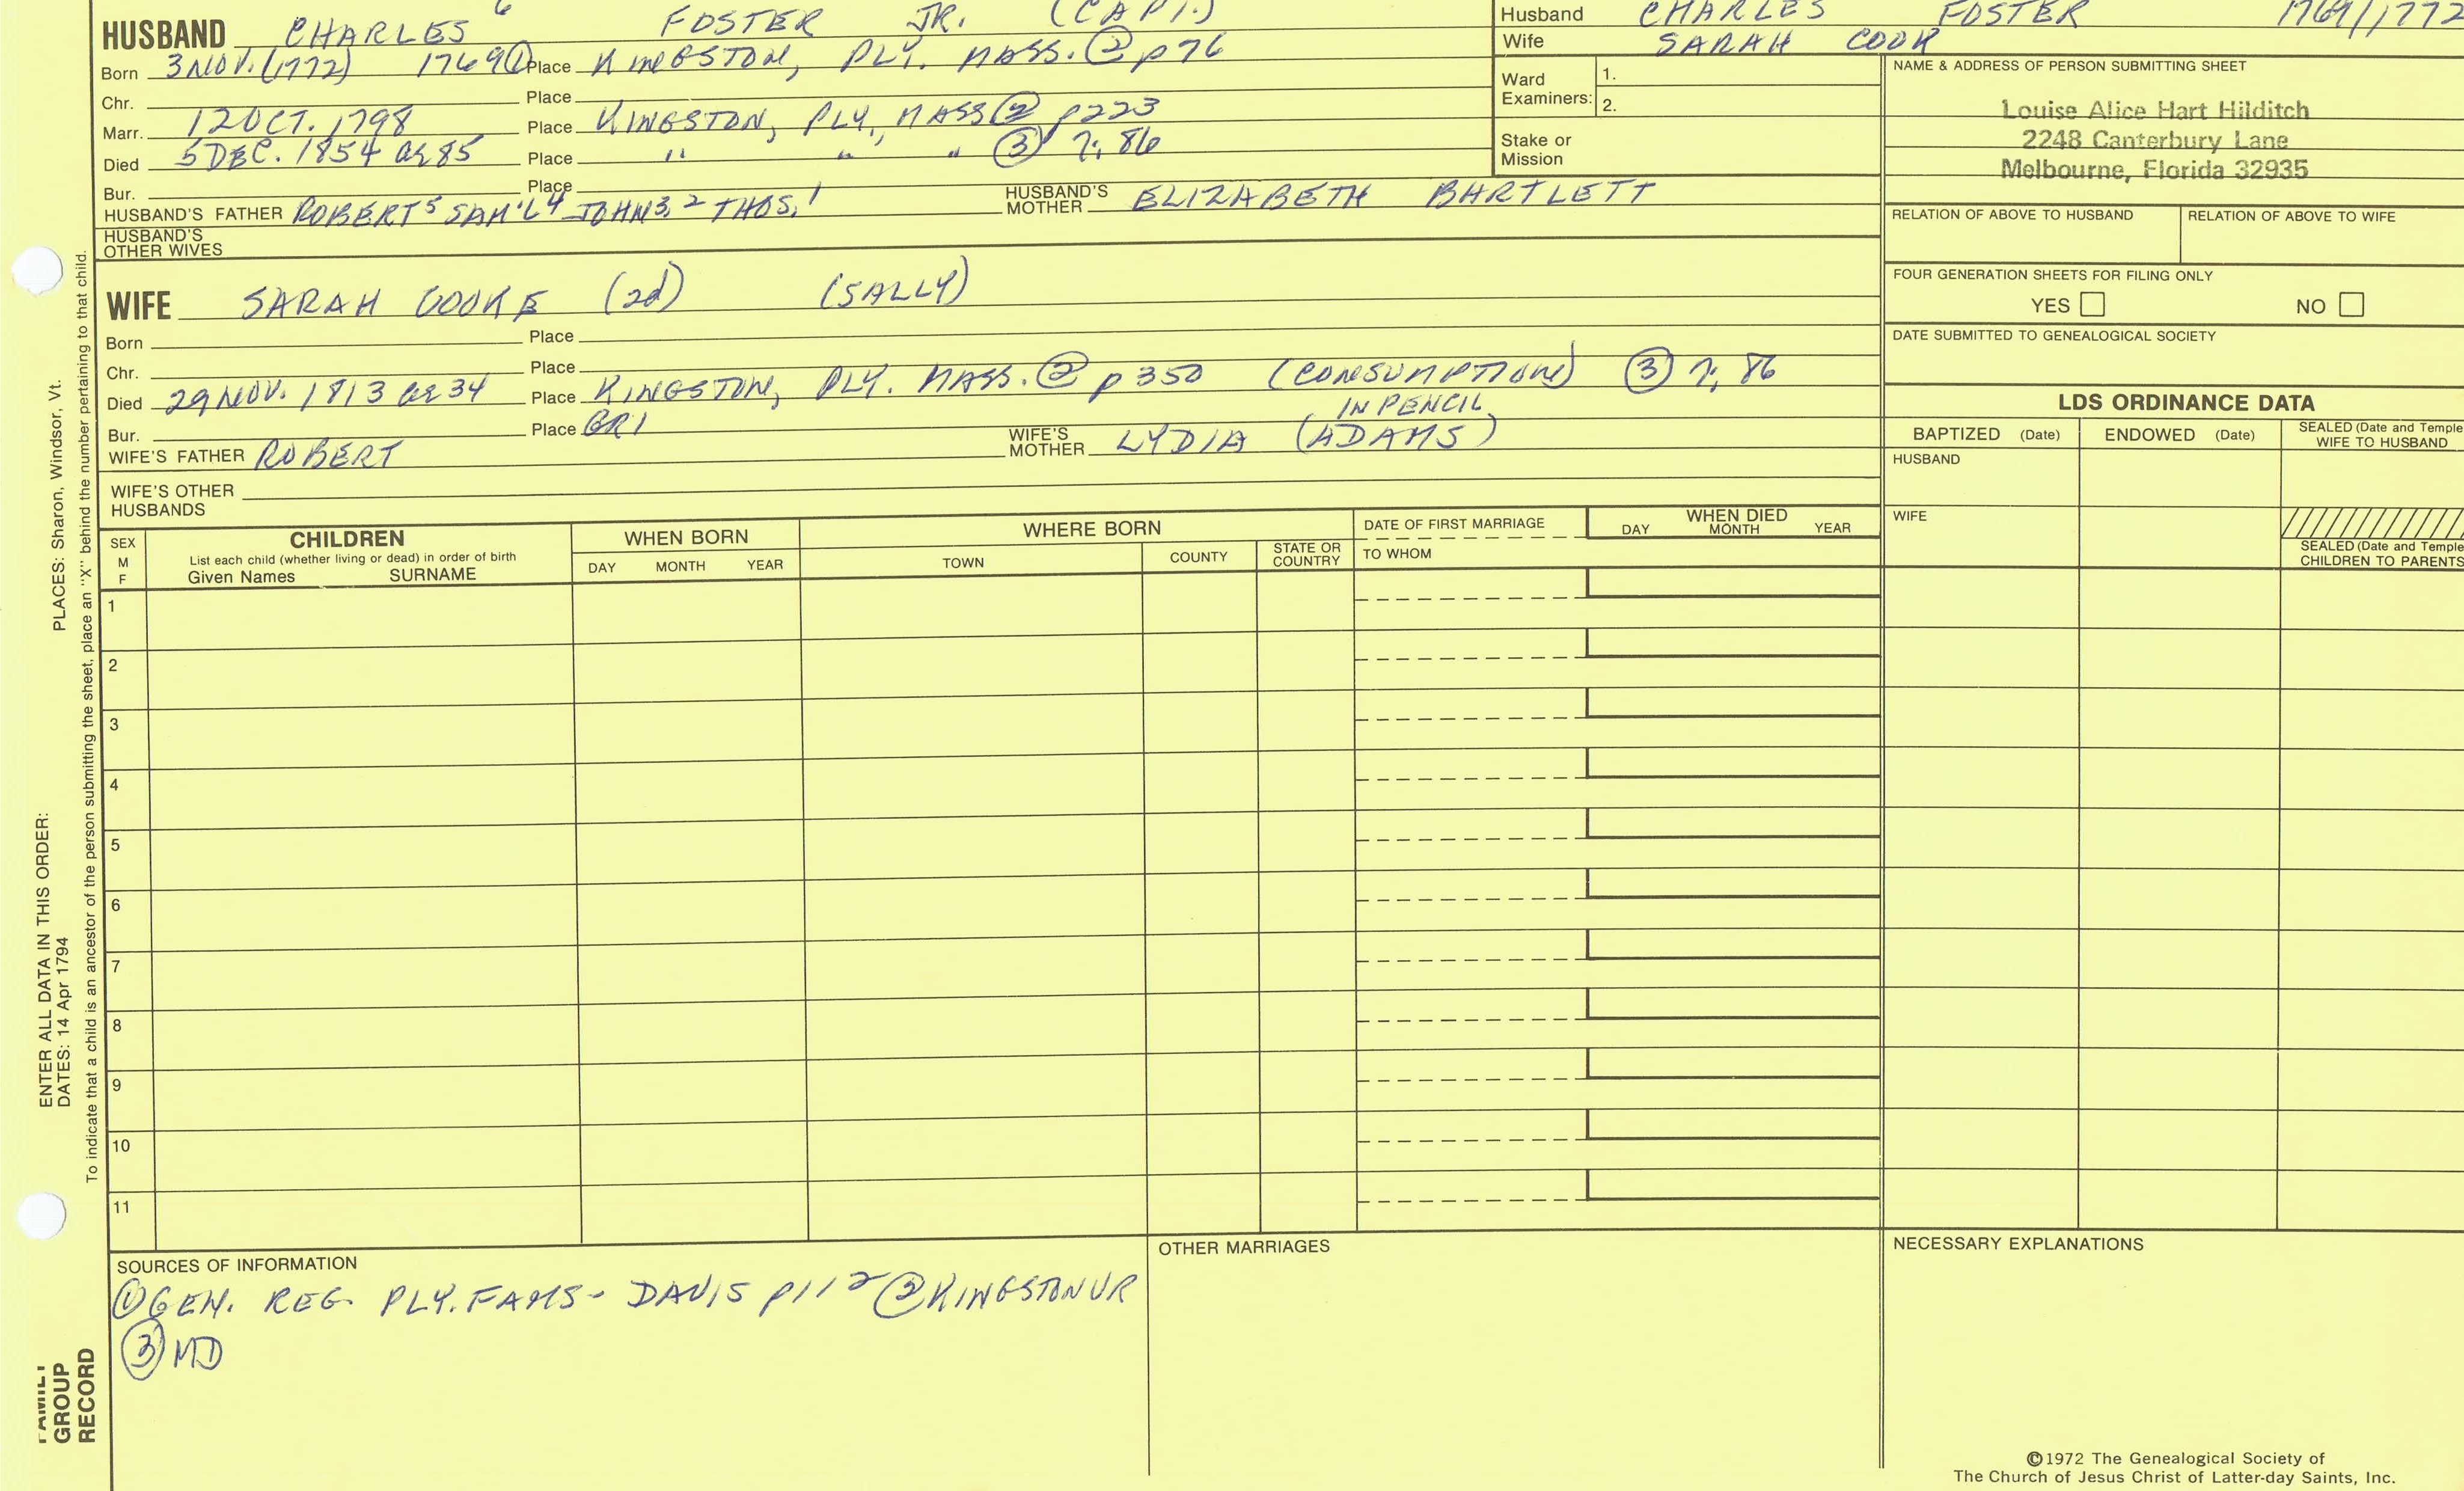 HUSBAND CHARLES 6 FOSTER JR. (CAPT.)
Born 3 NOV. (1772) 1769 ① Place KINGSTON, PLY. MASS. ② p76
Chr. Place
Marr. 12 OCT. 1798 Place KINGSTON, PLY., MASS ② p223
Died 5 DEC. 1854 ae 85 Place " " " ③ 7; 86
Bur. Place
HUSBAND'S FATHER ROBERT 5 SAM'L 4 JOHN 3, 2 THOS. 1 HUSBAND'S MOTHER ELIZABETH BARTLETT
HUSBAND'S OTHER WIVES
WIFE SARAH COOKE (2d) (SALLY)
Born Place
Chr. Place
Died 29 NOV. 1813 ae 34 Place KINGSTON, PLY. MASS. ② p350 (CONSUMPTION) ③ 7; 86
IN PENCIL
Bur. Place GR1
WIFE'S FATHER ROBERT WIFE'S MOTHER LYDIA (ADAMS)
WIFE'S OTHER HUSBANDS
Husband CHARLES FOSTER 1769/1772
Wife SARAH COOK
Ward Examiners: 1.
2.
Stake or Mission
NAME & ADDRESS OF PERSON SUBMITTING SHEET
Louise Alice Hart Hilditch
2248 Canterbury Lane
Melbourne, Florida 32935
RELATION OF ABOVE TO HUSBAND RELATION OF ABOVE TO WIFE
FOUR GENERATION SHEETS FOR FILING ONLY
YES NO
DATE SUBMITTED TO GENEALOGICAL SOCIETY
LDS ORDINANCE DATA
BAPTIZED (Date) ENDOWED (Date) SEALED (Date and Temple WIFE TO HUSBAND
HUSBAND
WIFE
SEALED (Date and Temple
CHILDREN TO PARENTS
SEX M F
CHILDREN
List each child (whether living or dead) in order of birth
Given Names SURNAME
WHEN BORN
DAY MONTH YEAR
WHERE BORN
TOWN COUNTY STATE OR COUNTRY
DATE OF FIRST MARRIAGE
TO WHOM
WHEN DIED
DAY MONTH YEAR
1
2
3
4
5
6
7
8
9
10
11
SOURCES OF INFORMATION
① GEN. REG. PLY. FAMS - DAVIS p112 ② KINGSTON VR
③ MD
OTHER MARRIAGES
NECESSARY EXPLANATIONS
©1972 The Genealogical Society of
The Church of Jesus Christ of Latter-day Saints, Inc.
PLACES: Sharon, Windsor, Vt.
ENTER ALL DATA IN THIS ORDER:
DATES: 14 Apr 1794
To indicate that a child is an ancestor of the person submitting the sheet, place an "X" behind the number pertaining to that child.
FAMILY
GROUP
RECORD